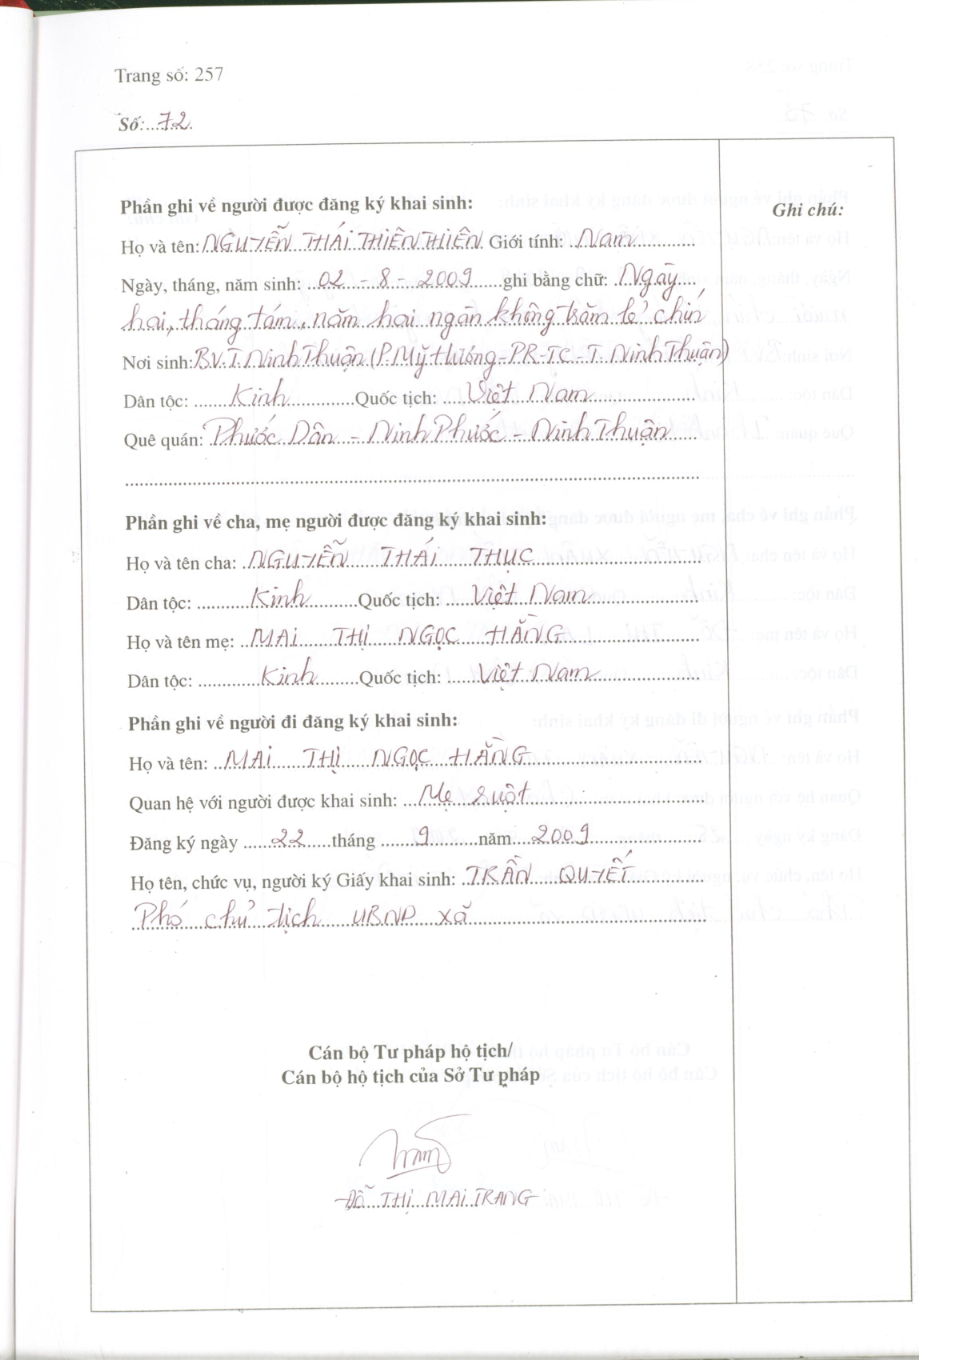 Trang số: 257
Số: 72
Phần ghi về người được đăng ký khai sinh:
Ghi chú:
Họ và tên: NGUYỄN THÁI THIÊN THIÊN Giới tính: Nam
Ngày, tháng, năm sinh: 02 - 8 - 2009 ghi bằng chữ: Ngày
hai, tháng tám, năm hai ngàn không trăm lẻ chín
Nơi sinh: B.V.T. Ninh Thuận (P. Mỹ Hương - PR-TC - T. Ninh Thuận)
Dân tộc: Kinh Quốc tịch: Việt Nam
Quê quán: Phước Dân - Ninh Phước - Ninh Thuận
Phần ghi về cha, mẹ người được đăng ký khai sinh:
Họ và tên cha: NGUYỄN THÁI THỤC
Dân tộc: Kinh Quốc tịch: Việt Nam
Họ và tên mẹ: MAI THỊ NGỌC HẰNG
Dân tộc: Kinh Quốc tịch: Việt Nam
Phần ghi về người đi đăng ký khai sinh:
Họ và tên: MAI THỊ NGỌC HẰNG
Quan hệ với người được khai sinh: Mẹ ruột
Đăng ký ngày 22 tháng 9 năm 2009
Họ tên, chức vụ, người ký Giấy khai sinh: TRẦN QUYẾT
Phó chủ tịch UBND xã
Cán bộ Tư pháp hộ tịch/
Cán bộ hộ tịch của Sở Tư pháp
ĐỖ THỊ MAI TRANG